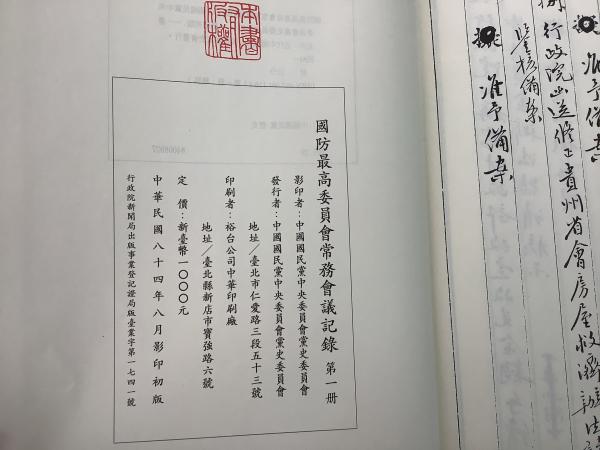 行政院函送修正貴州省會房屋救濟辦法
鑒核備案
擬 准予備案
准予備案
本書
版權
國防最高委員會常務會議記錄 第一册
影印者：中國國民黨中央委員會黨史委員會
發行者：中國國民黨中央委員會黨史委員會
地址／臺北市仁愛路三段五十三號
印刷者：裕台公司中華印刷廠
地址／臺北縣新店市寶強路六號
定 價：新臺幣一〇〇〇元
中華民國八十四年八月影印初版
行政院新聞局出版事業登記證局版臺業字第一七四一號
84008927